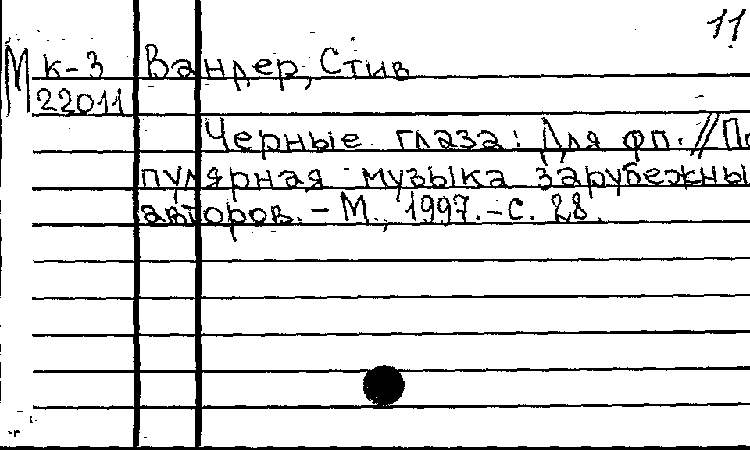 11
М к-3 Вандер, Стив
22011
Черные глаза: Для фп. // По
пулярная музыка зарубежны
авторов. - М., 1997. - С. 28.